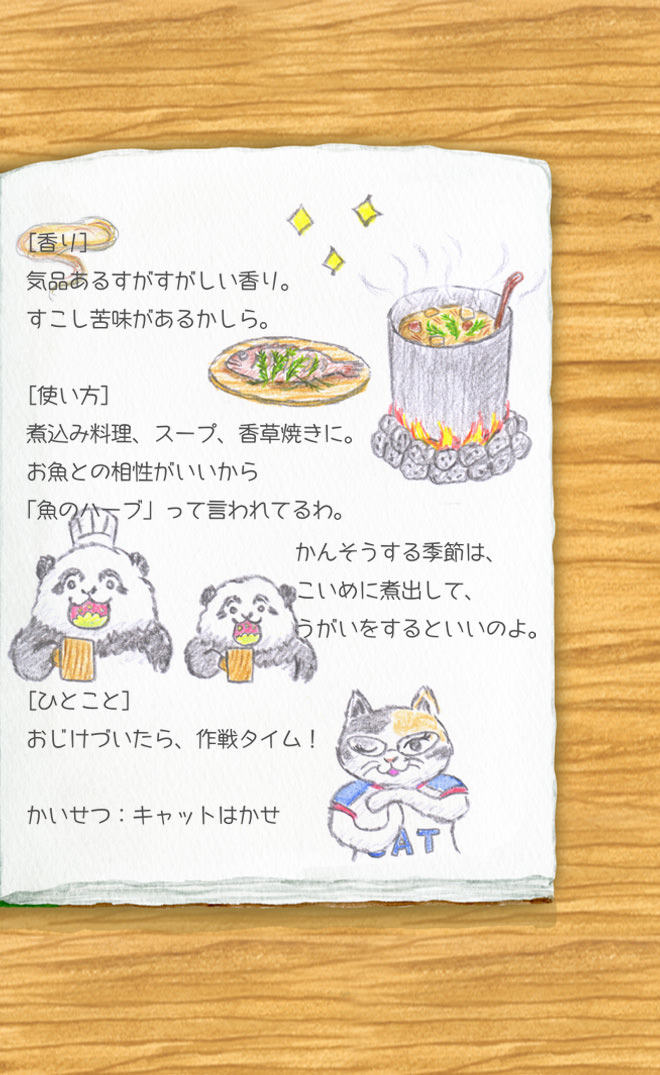 [香り]
気品あるすがすがしい香り。
すこし苦味があるかしら。
[使い方]
煮込み料理、スープ、香草焼きに。
お魚との相性がいいから
「魚のハーブ」って言われてるわ。
かんそうする季節は、
こいめに煮出して、
うがいをするといいのよ。
[ひとこと]
おじけづいたら、作戦タイム！
かいせつ：キャットはかせ
CAT